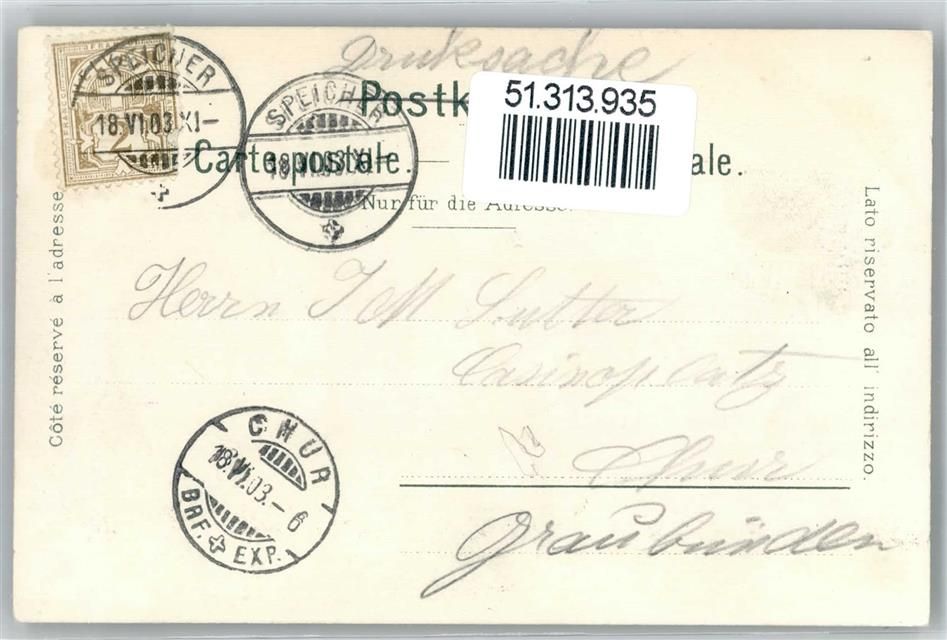 Drucksache
Postk
51.313.935
Carte postale.
ale.
Nur für die Adresse.
FRANCO
2
SPEICHER
18.VI.03.XI–
SPEICHER
18.VI.03.XI–
Côté réservé à l'adresse
Lato riservato all' indirizzo.
Herrn J M Sutter
Casinoplatz
Chur
Graubünden
CHUR
18.VI.03.–6
BRF. EXP.